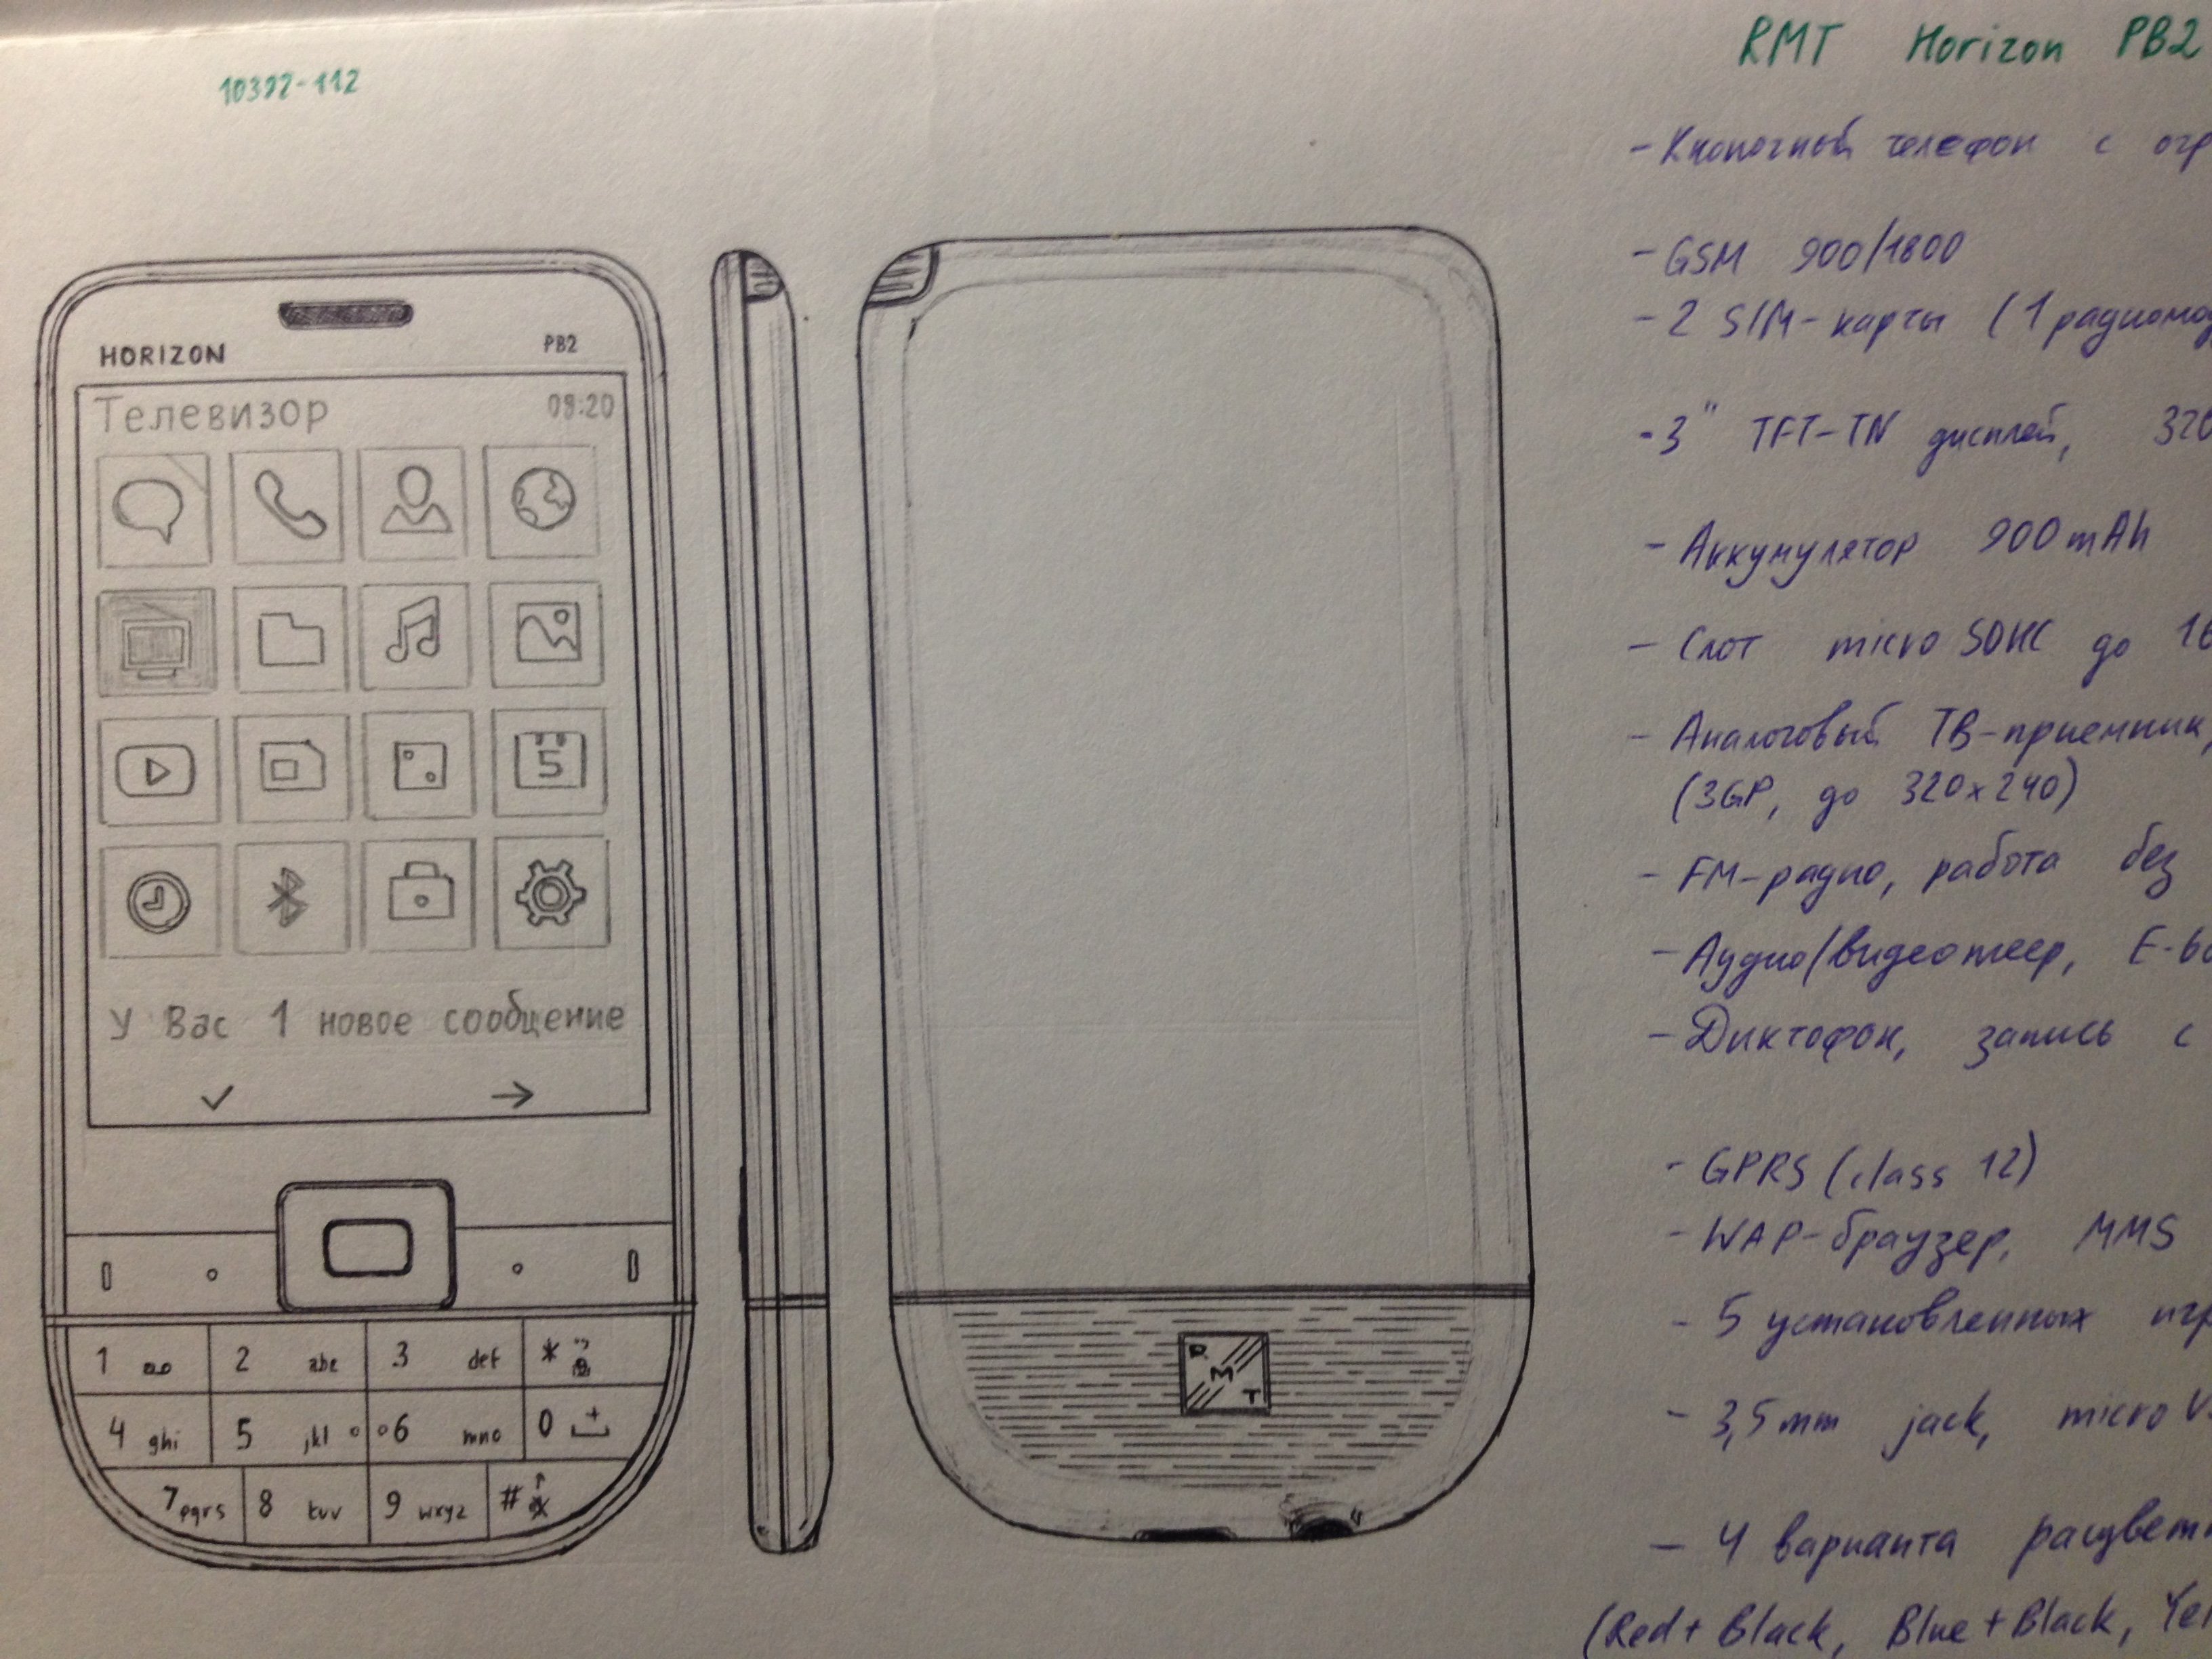 10392-112
HORIZON PB2
Телевизор 09:20
5
У Вас 1 новое сообщение
1 2 abc 3 def *
4 ghi 5 jkl 6 mno 0 +
7 pqrs 8 tuv 9 wxyz #
R
M
T
RMT Horizon PB2
- Кнопочный телефон с
- GSM 900/1800
- 2 SIM-карты (1
- 3" TFT-TN дисплей, 320
- Аккумулятор 900 mAh
- Слот micro SDHC до 16
- Аналоговый ТВ-приемник,
(3GP, до 320x240)
- FM-радио, работа без
- Аудио/видеоплеер,
- Диктофон, запись с
- GPRS (class 12)
- WAP-браузер, MMS
- 5 установленных игр
- 3,5 mm jack, micro
- 4 варианта
(Red+Black, Blue+Black,